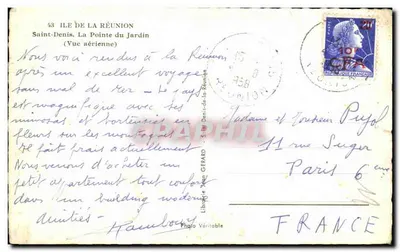 43 ILE DE LA RÉUNION
Saint-Denis. La Pointe du Jardin
(Vue aérienne)
Nous voici rendus à la Réunion
après un excellent voyage
sans mal de mer - Le pays
est magnifique avec ses
mimosas et hortensias en
fleurs sur les montagnes
Il fait frais actuellement
Nous venons d'acheter un
petit appartement tout confort
dans un building moderne
Amitiés
Photo Véritable
Librairie GERARD St-Denis-de-la-Réunion
10F
CFA
Madame et Monsieur Pujol
11 rue Suger
Paris 6
FRANCE